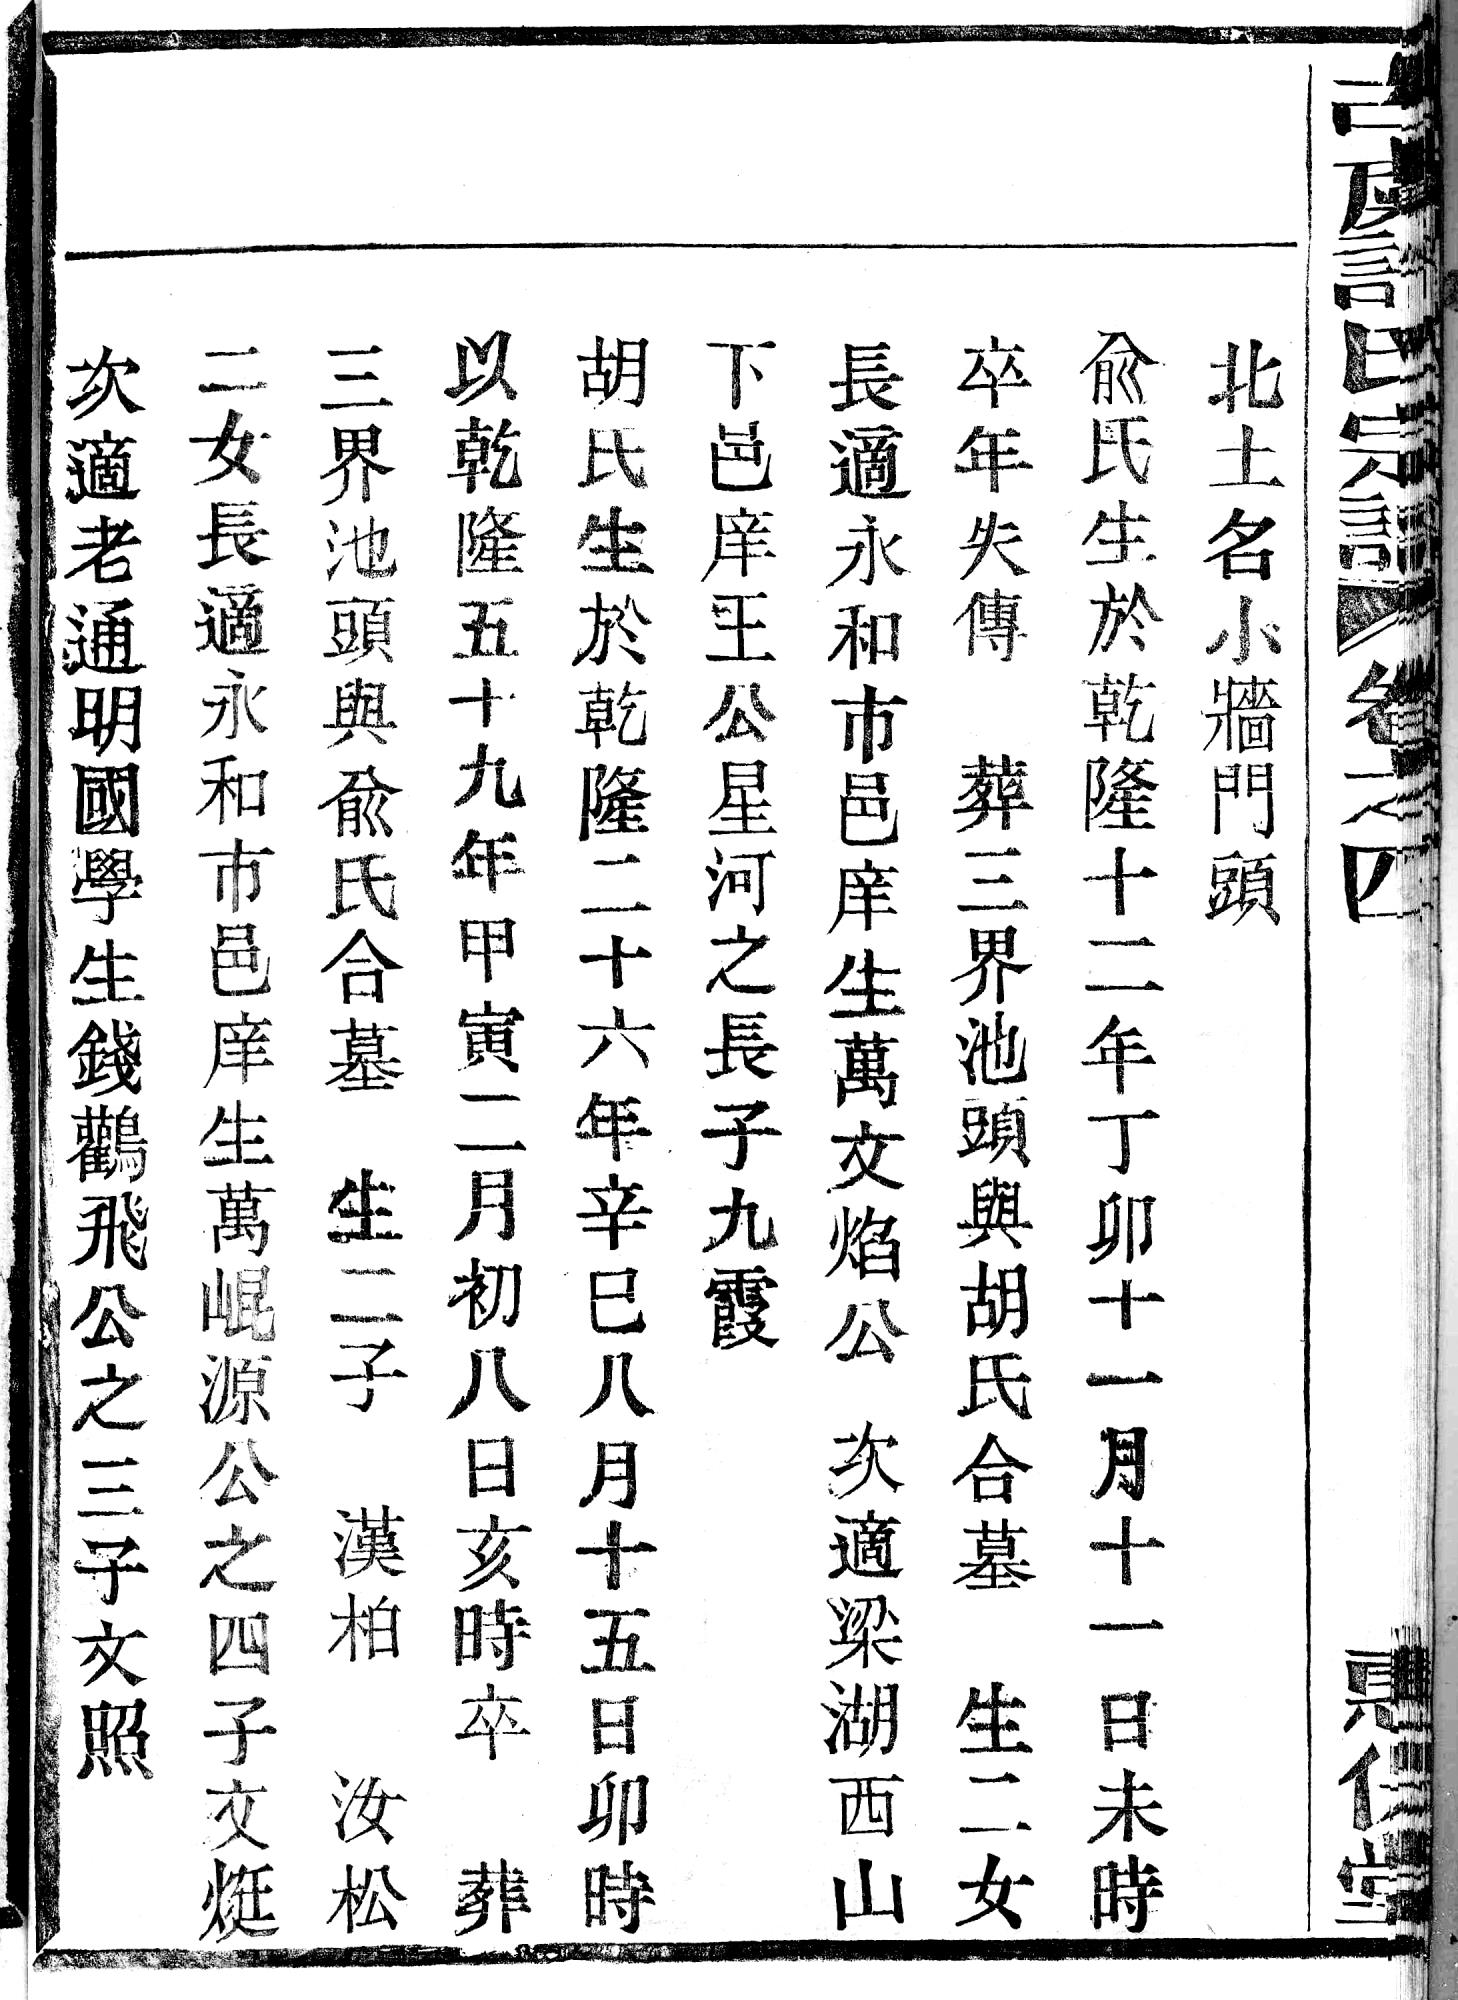 古虞許氏宗譜　卷之四　惠伦堂
北土名小牆門頭
俞氏生於乾隆十二年丁卯十一月十一日未時
卒年失傳　葬三界池頭與胡氏合墓　生二女
長適永和市邑庠生萬文焰公　次適梁湖西山
下邑庠王公星河之長子九霞
胡氏生於乾隆二十六年辛巳八月十五日卯時
以乾隆五十九年甲寅二月初八日亥時卒　葬
三界池頭與俞氏合墓　生二子　漢柏　汝松
二女長適永和市邑庠生萬崐源公之四子文烶
次適老通明國學生錢鸛飛公之三子文照